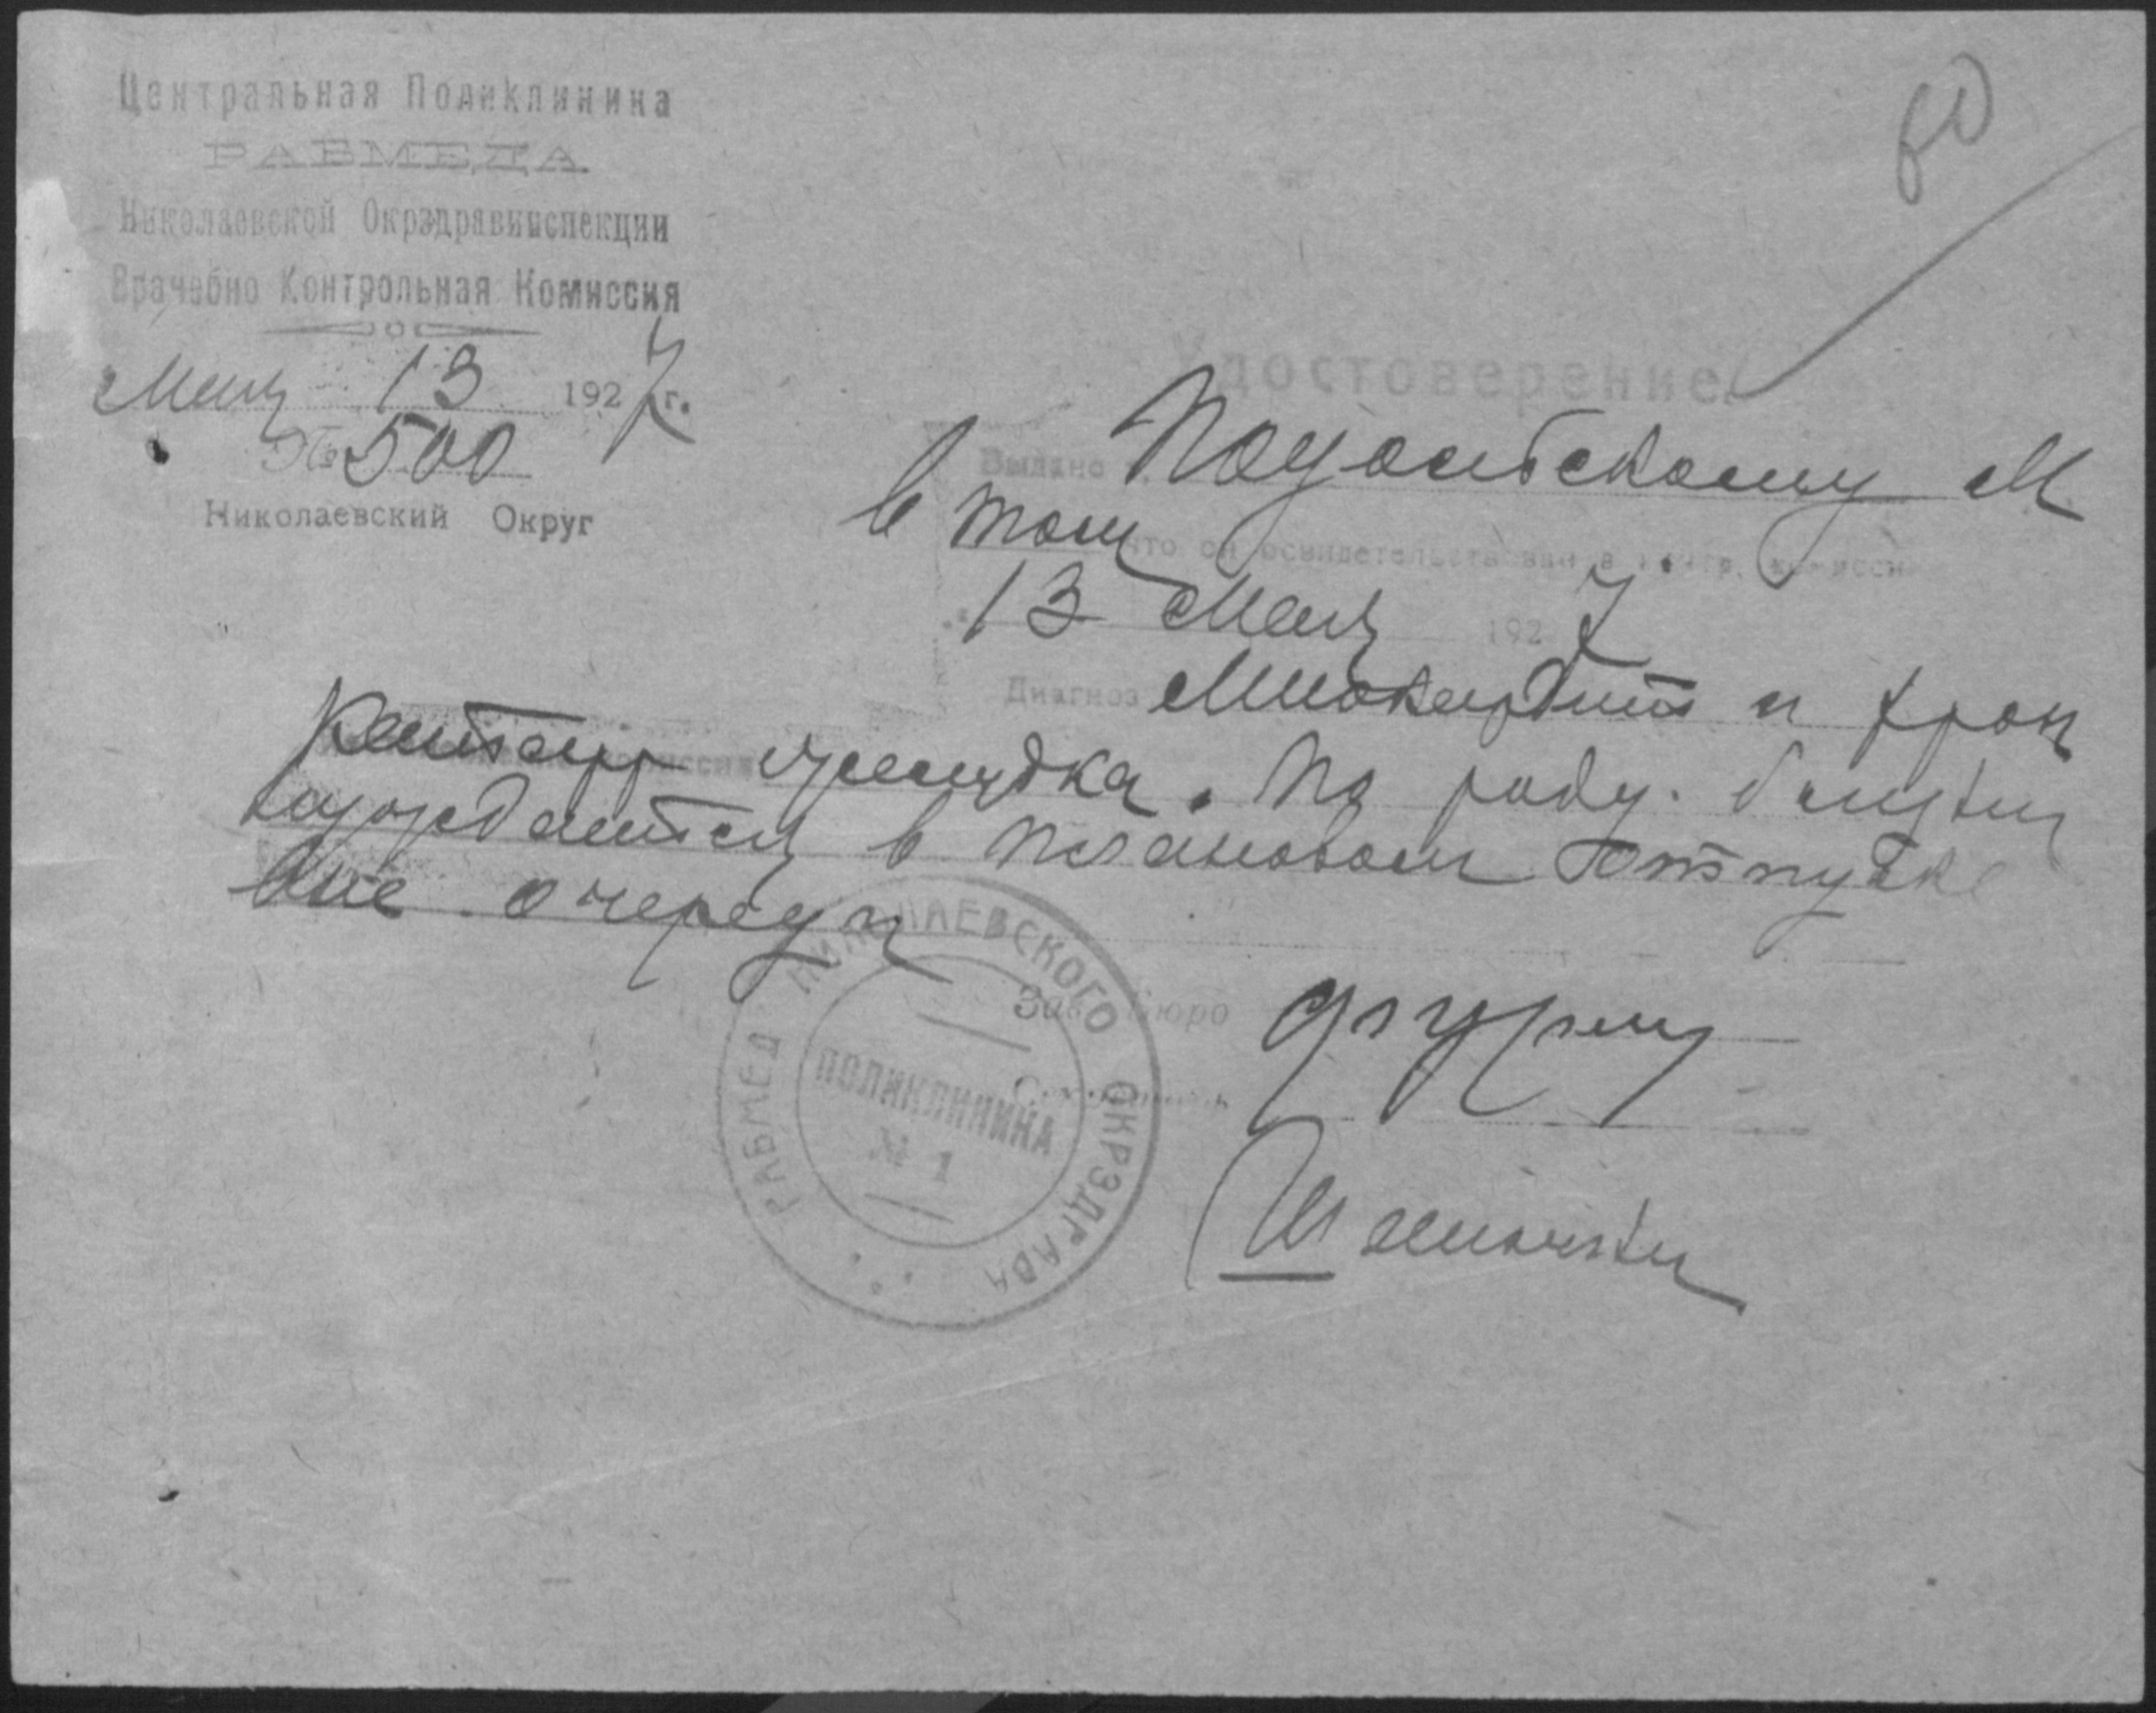 60
Центральная Поликлиника
РАБМЕДА
Николаевской Окрздравинспекции
Врачебно Контрольная Комиссия
Мая 13 1927 г.
№ 500
Николаевский Округ
Удостоверение
Выдано М
в том что он освидетельствован в контр. комисси
13 Мая 1927
Диагноз Миокардит и хрон
катарр желудка. По роду болезни
нуждается в плановом отпуске
вне очереди
Зав. Бюро
Секретарь
РАБМЕД НИКОЛАЕВСКОГО ОКРЗДРАВА
ПОЛИКЛИНИКА
№ 1